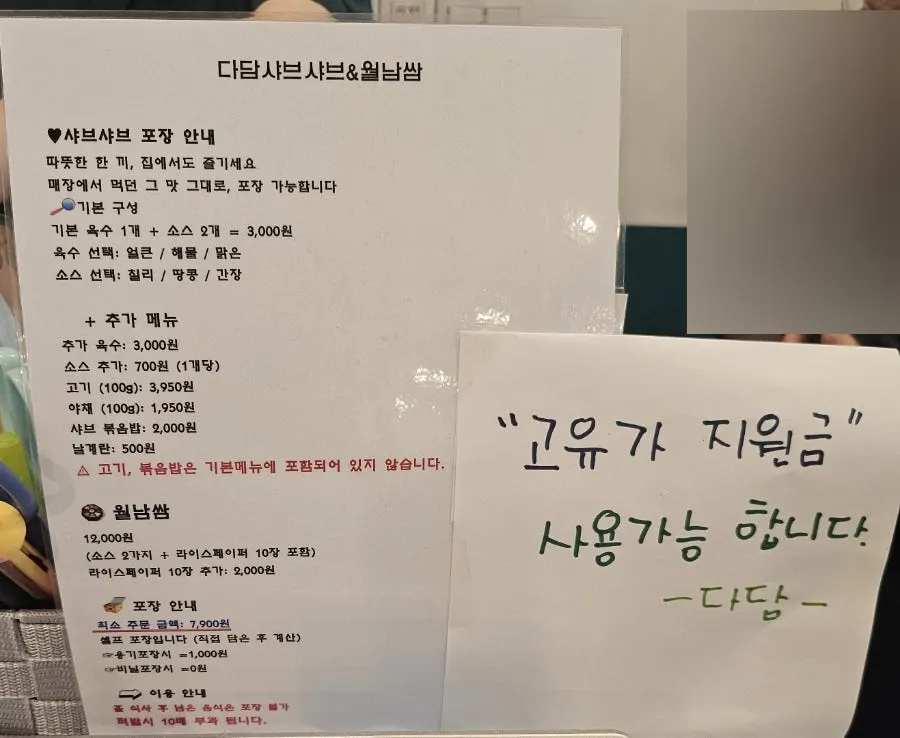 다담샤브샤브&월남쌈
♥샤브샤브 포장 안내
따뜻한 한 끼, 집에서도 즐기세요
매장에서 먹던 그 맛 그대로, 포장 가능합니다
기본 구성
기본 육수 1개 + 소스 2개 = 3,000원
육수 선택: 얼큰 / 해물 / 맑은
소스 선택: 칠리 / 땅콩 / 간장
+ 추가 메뉴
추가 육수: 3,000원
소스 추가: 700원 (1개당)
고기 (100g): 3,950원
야채 (100g): 1,950원
샤브 볶음밥: 2,000원
날계란: 500원
⚠ 고기, 볶음밥은 기본메뉴에 포함되어 있지 않습니다.
월남쌈
12,000원
(소스 2가지 + 라이스페이퍼 10장 포함)
라이스페이퍼 10장 추가: 2,000원
포장 안내
최소 주문 금액: 7,900원
셀프 포장입니다 (직접 담은 후 계산)
☞용기포장시 =1,000원
☞비닐포장시 =0원
이용 안내
홀 식사 후 남은 음식은 포장 불가
적발시 10배 부과 됩니다.
"고유가 지원금"
사용가능 합니다.
-다담-